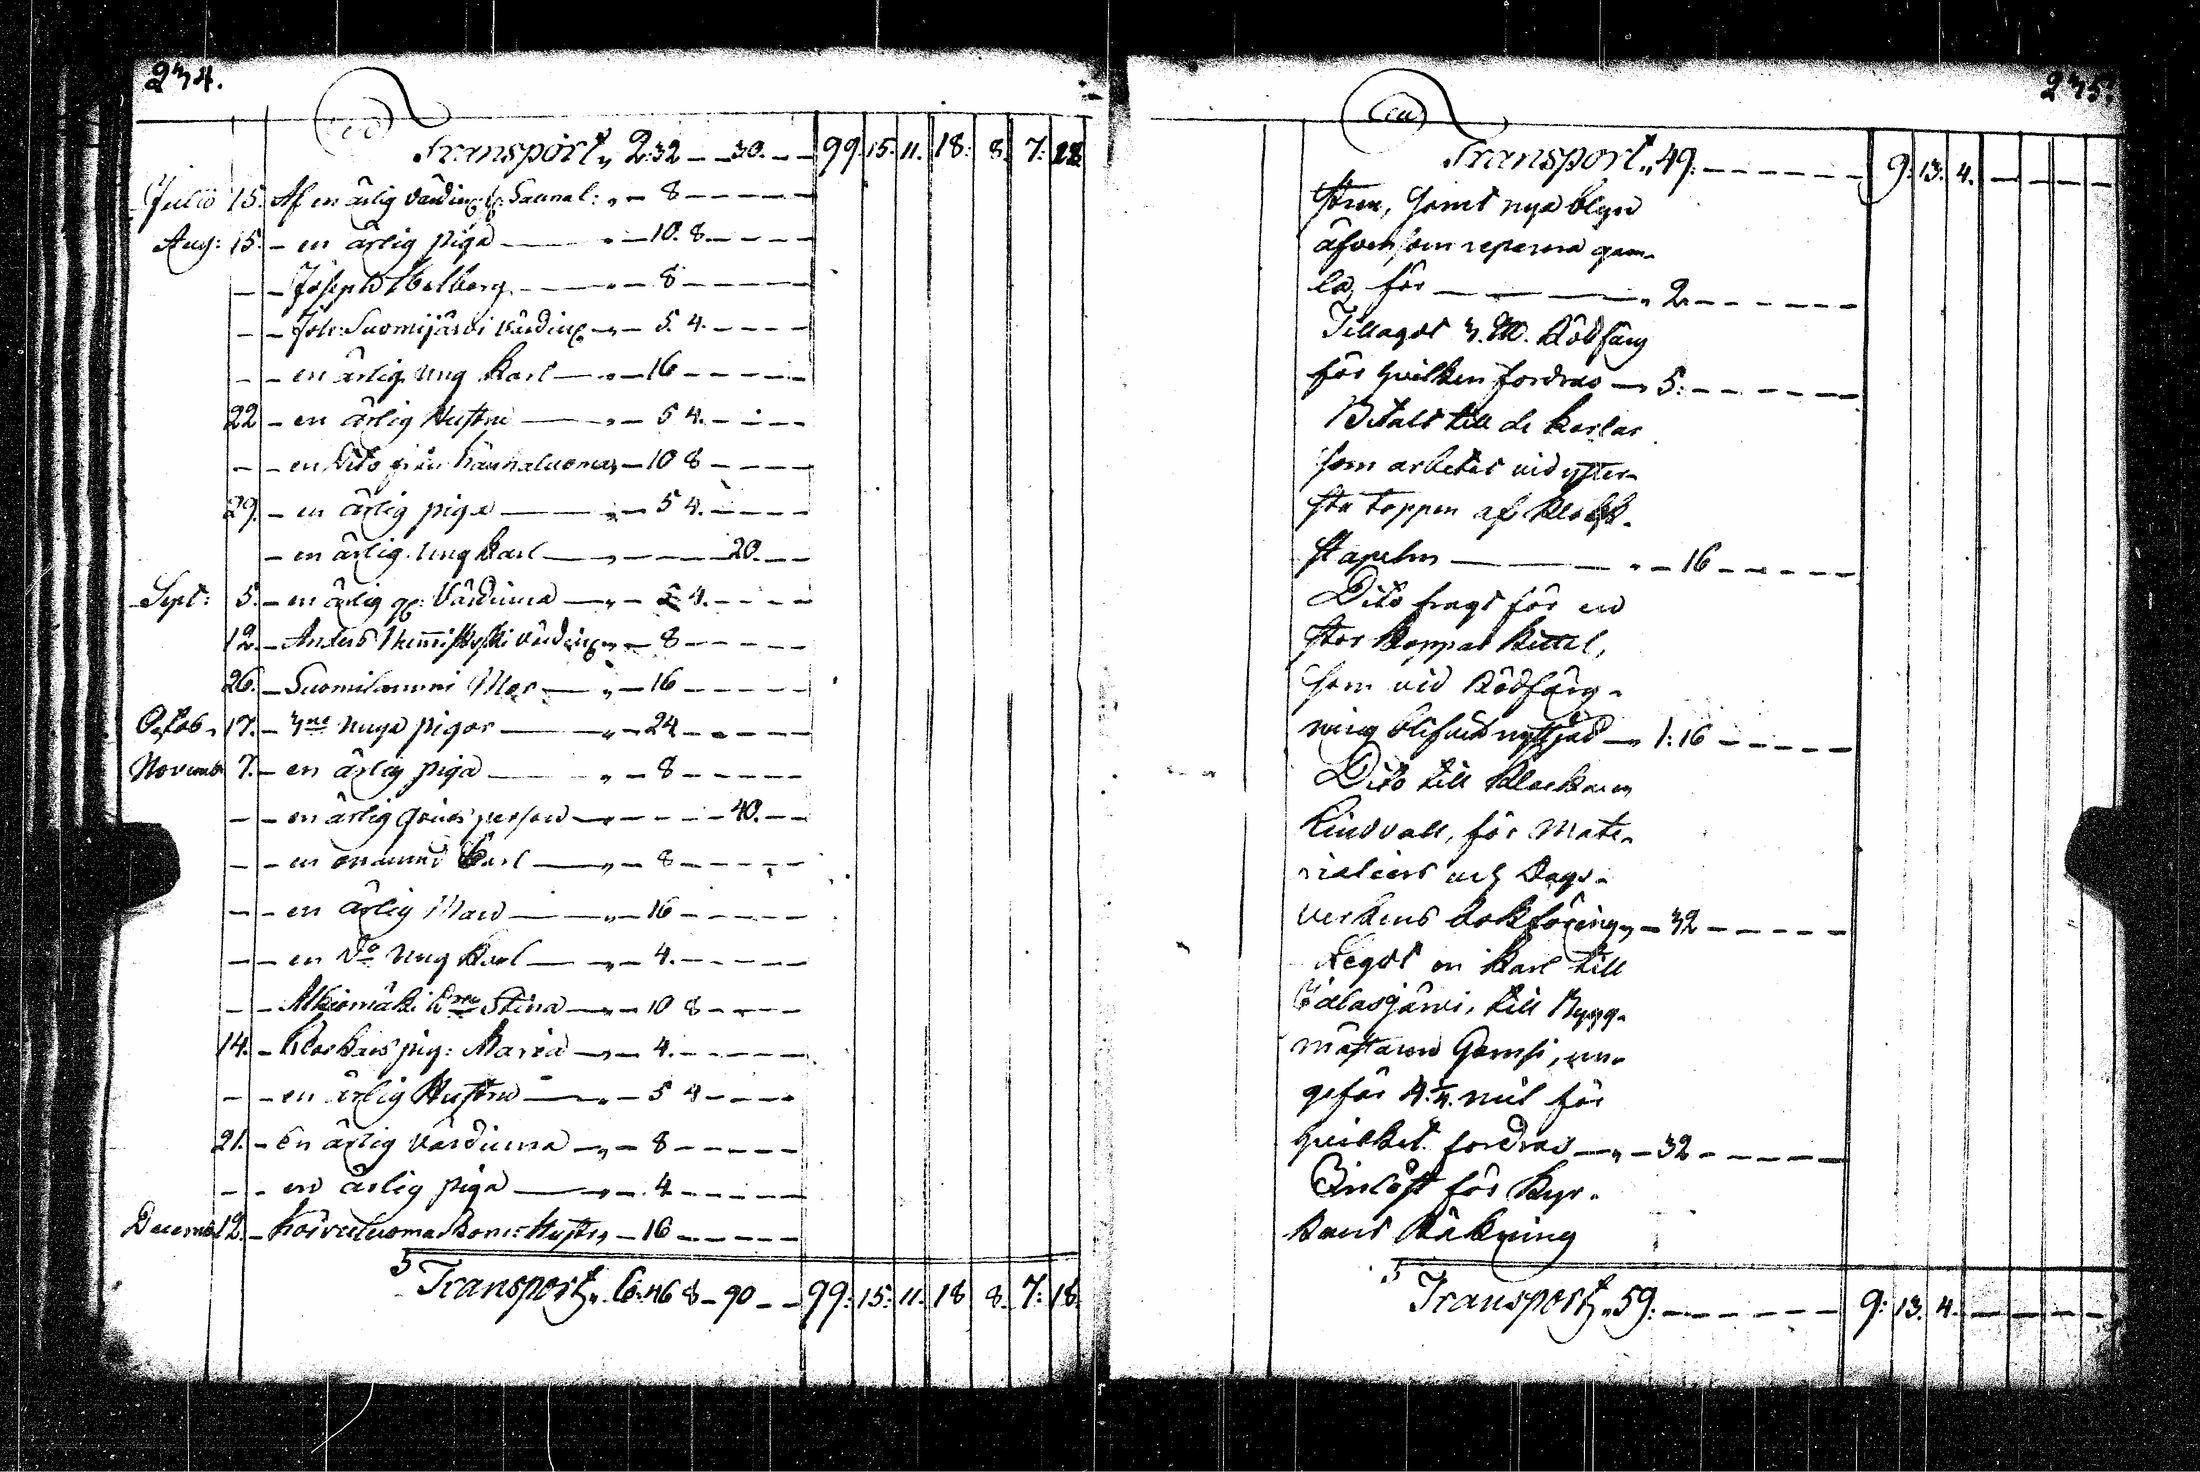 234.
Transport „ 2:32 — 30. — 99. 15. 11. 18: 8. 7: 18.
Julii 15. Af en ärlig Värdin: „ — 8 — — — —
Aug: 15. — en ärlig piga — „ — 10. 8. — — —
— — Joseph Halberg — „ — 8 — — — —
— — Joh: Suomijärvi Värdin: „ — 5. 4. — — —
— — en ärlig ung Karl — „ — 16 — — — —
22 — en ärlig Hustru — „ — 5 4. — — —
— — en Dito från „ — 10 8 — — —
29. — en ärlig piga — „ — 5 4. — — —
— en ärlig ung Karl — „ — — — 20. —
Sept: 5. — en ärlig Värdinna — „ — 5 4. — — —
12. — Anders „ — 8 — — — —
26. — Suomilammi Mor — „ — 16 — — — —
Octob. 17. — 3ne unga pigor — „ — 24 — — — —
Novemb 7. — en ärlig piga — „ — 8 — — — —
— — en ärlig person — „ — — — 40. —
— — en Karl — „ — 8 — — — —
— — en ärlig Man — „ — 16 — — — —
— — en Do ung Karl — „ — 4. — — — —
— — Alkiomäki Stina — „ — 10 8 — — —
14. — Klockars pig: Maria — „ — 4. — — — —
— — en ärlig Hustru — „ — 5 4 — — —
21. — En ärlig Värdinna — „ — 8 — — — —
— — en ärlig piga — „ — 4 — — — —
Decemb 12. — Hustr „ — 16 — — — —
Transport „ 6:46 8 — 90 — — 99: 15: 11. 18 8. 7: 18.
235.
Transport „ 49. — — — — 9: 13: 4. — — — —
samt nya
äfvensom reparera gam-
la, för — — — „ 2. — — — —
Tillagdt 3. Rödfärg
för hvilken fordras — „ 5: — — — —
Betalt till de Karlar
som arbetat vid ytter-
sta toppen af Klock-
stapeln — — „ — 16 — — — —
Dito fragt för en
stor Koppar Kittel,
som vid Rödfärg-
ning blifvit nyttjad — „ 1: 16 — — — —
Dito till Klockaren
Lindvall, för Mate-
rialiers och Dags-
verkens bokföring „ — 32 — — — —
Legdt en Karl till
Jalasjärvi, till Bygg-
mästaren un-
gefär 4. ¼. mil för
hvilket fordras — „ — 32 — — — —
Inlöst för Kyr-
kans Räkning
Transport „ 59: — — — — 9: 13. 4. — — — —